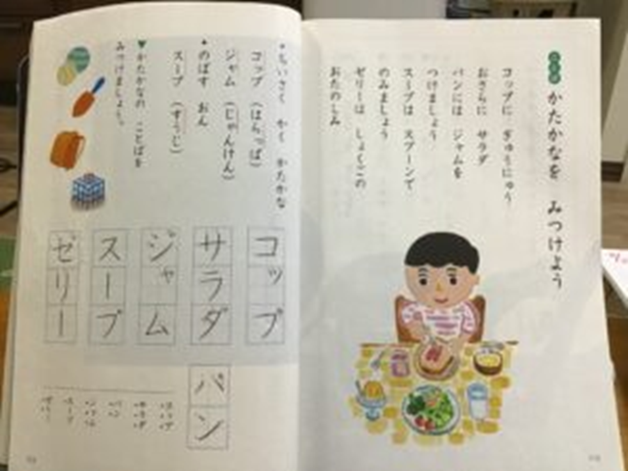 かたかなを みつけよう
コップに ぎゅうにゅう
おさらに サラダ
パンには ジャムを
つけましょう
スープは スプーンで
のみましょう
ゼリーは しょくごの
おたのしみ
ちいさく かく かたかな
コップ (はらっぱ)
ジャム (じゃんけん)
のばす おん
スープ (すうじ)
かたかなの ことばを
みつけましょう。
コップ
サラダ
ジャム
スープ
ゼリー
パン
コップ
サラダ
パン
ジャム
スープ
ゼリー